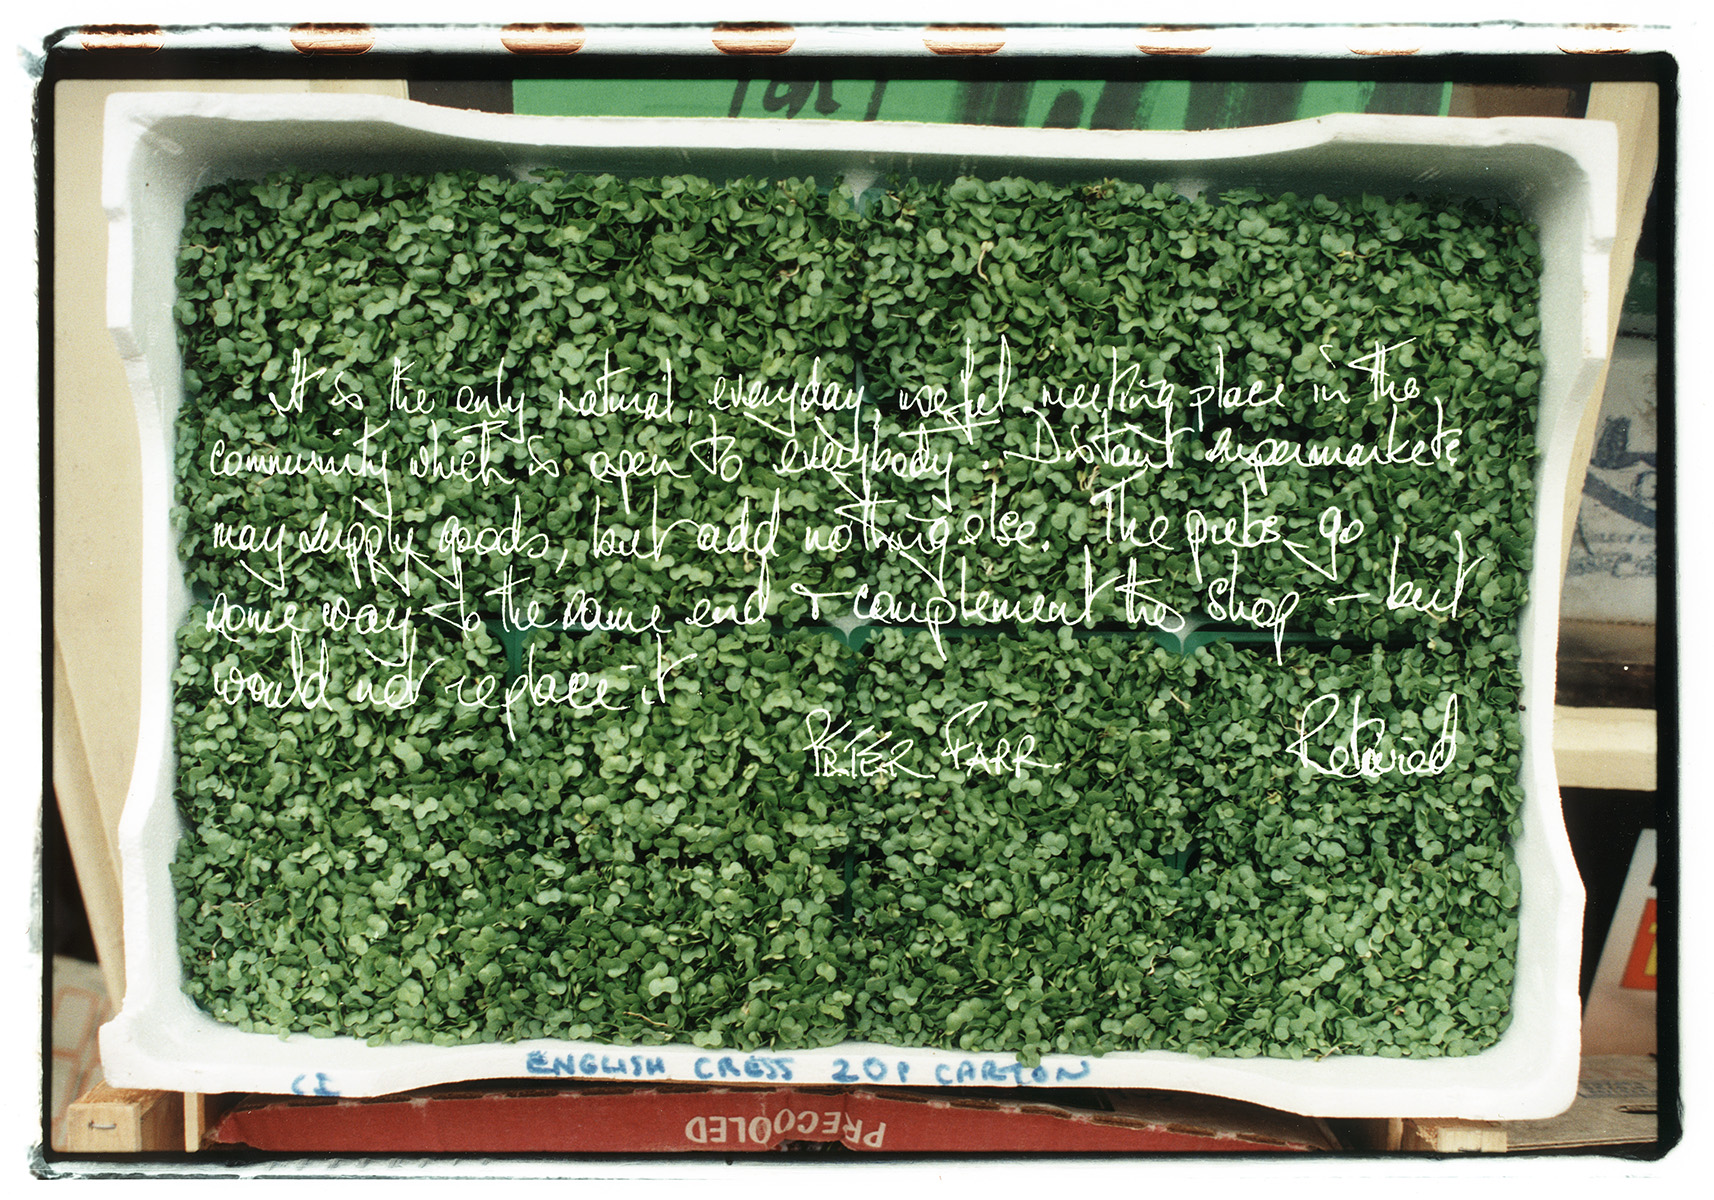 It is the only natural, everyday, useful meeting place in the
community which is open to everybody. Distant supermarkets
may supply goods, but add nothing else. The pubs go
some way to the same end & complement the shop – but
would not replace it
PETER FARR. Retired
ENGLISH CRESS 20P CARTON
PRECOOLED